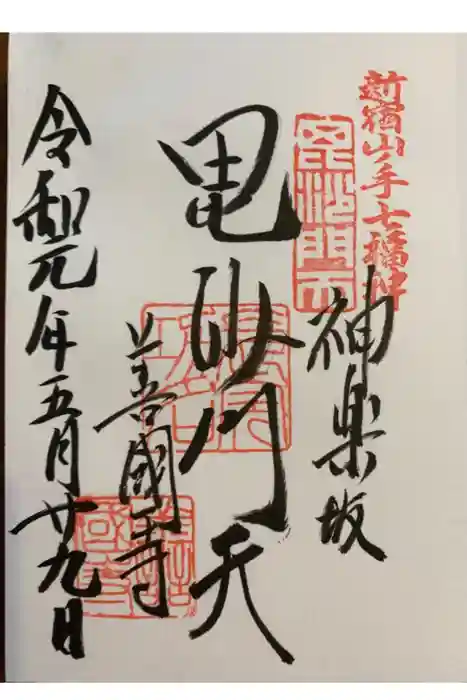 新宿山ノ手七福神
神楽坂
毘沙門天
善國寺
令和元年五月廿九日